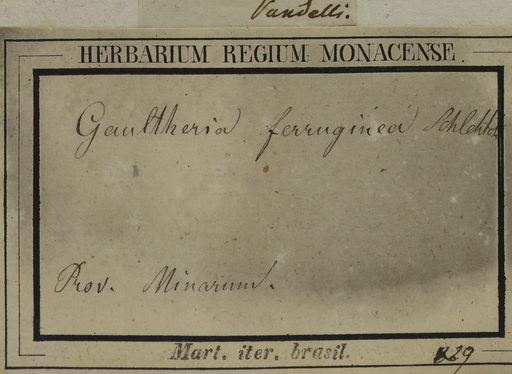 Vandelli.
HERBARIUM REGIUM MONACENSE.
Gaultheria ferruginea
Prov. Minarum.
Mart. iter. brasil.